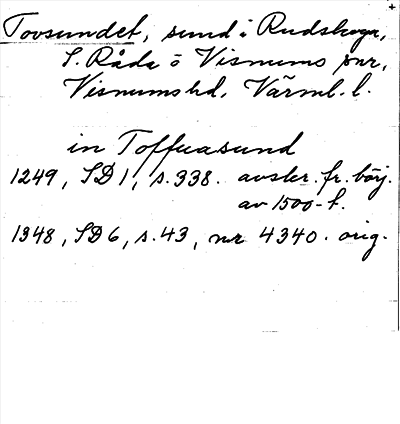 Tovsundet, sund i Rudskoga,
S. Råda o Visnums snr,
Visnums hd, Värml. l.
in Toffuasund
1249, SD 1, s. 338. avskr. fr. börj.
av 1500-t.
1348, SD 6, s. 43, nr 4340. orig.